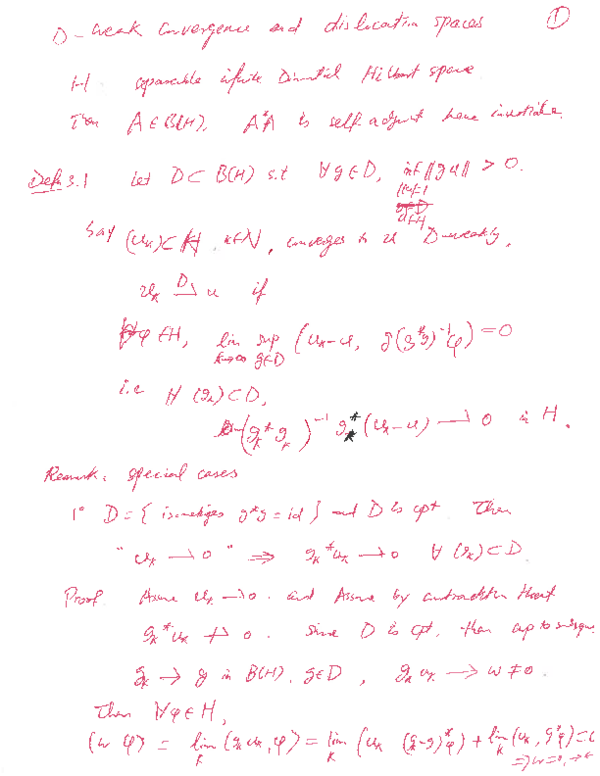 D-weak convergence and dislocation spaces ①
H separable infinite Dimential Hilbert space
Then A ∈ B(H), A*A is self-adjoint hence invertible.
Defn 3.1 Let D ⊂ B(H) s.t ∀g∈D, inf ‖gu‖ > 0.
‖u‖=1
u∈H
Say (uₖ) ⊂ H, k∈N, converges to u D-weakly,
uₖ ⇀ᴰ u if
∀φ∈H, lim sup (uₖ-u, g(g*g)⁻¹φ) = 0
k→∞ g∈D
i.e ∀ (gₖ) ⊂ D,
(gₖ* gₖ)⁻¹ gₖ* (uₖ-u) ⇀ 0 in H.
Remark: special cases
1° D = { isometries g*g = id } and D is cpt. Then
"uₖ ⇀ 0" ⇒ gₖ*uₖ ⇀ 0 ∀ (gₖ) ⊂ D.
Proof Assume uₖ ⇀ 0. and Assume by contradiction that
gₖ*uₖ ⇀̸ 0. Since D is cpt, then up to
gₖ → g in B(H). g∈D, gₖuₖ ⇀ w ≠ 0.
Then ∀φ∈H,
(w φ) = lim (gₖuₖ, φ) = lim (uₖ (gₖ-g)*φ) + lim (uₖ, g*φ) = 0
k k k
⇒ w=0,